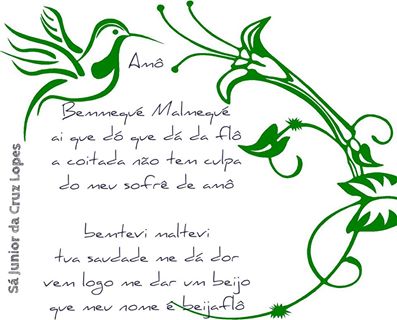 Amô
Bemmequé Malmequé
ai que dó que dá da flô
a coitada não tem culpa
do meu sofrê de amô
bemtevi maltevi
tua saudade me dá dor
vem logo me dar um beijo
que meu nome é beijaflô
Sá Junior da Cruz Lopes